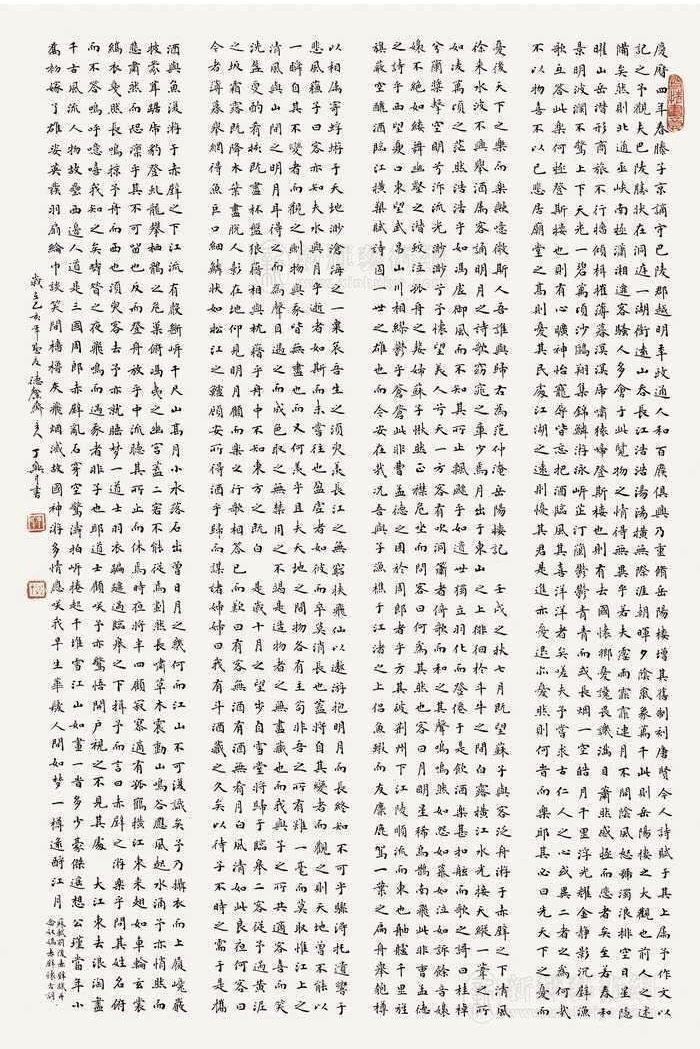 慶曆四年春滕子京謫守巴陵郡越明年政通人和百廢俱興乃重脩岳陽樓增其舊制刻唐賢今人詩賦于其上屬予作文以
記之予觀夫巴陵勝狀在洞庭一湖銜遠山吞長江浩浩湯湯橫無際涯朝暉夕陰氣象萬千此則岳陽樓之大觀也前人之述
備矣然則北通巫峽南極瀟湘遷客騷人多會于此覽物之情得無異乎若夫霪雨霏霏連月不開陰風怒號濁浪排空日星隱
曜山岳潛形商旅不行檣傾楫摧薄暮冥冥虎嘯猿啼登斯樓也則有去國懷鄉憂讒畏譏滿目蕭然感極而悲者矣至若春和
景明波瀾不驚上下天光一碧萬頃沙鷗翔集錦鱗游泳岸芷汀蘭鬱鬱青青而或長煙一空皓月千里浮光耀金靜影沉璧漁
歌互答此樂何極登斯樓也則有心曠神怡寵辱皆忘把酒臨風其喜洋洋者矣嗟夫予嘗求古仁人之心或異二者之為何哉
不以物喜不以己悲居廟堂之高則憂其民處江湖之遠則憂其君是進亦憂退亦憂然則何時而樂耶其必曰先天下之憂而
憂後天下之樂而樂歟噫微斯人吾誰與歸右為范仲淹岳陽樓記 壬戌之秋七月既望蘇子與客泛舟游于赤壁之下清風
徐來水波不興舉酒屬客誦明月之詩歌窈窕之章少焉月出于東山之上徘徊於斗牛之間白露橫江水光接天縱一葦之所
如凌萬頃之茫然浩浩乎如馮虛御風而不知其所止飄飄乎如遺世獨立羽化而登僊于是飲酒樂甚扣舷而歌之歌曰桂棹
兮蘭槳擊空明兮泝流光渺渺兮予懷望美人兮天一方客有吹洞簫者倚歌而和之其聲嗚嗚然如怨如慕如泣如訴餘音嫋
嫋不絕如縷舞幽壑之潛蛟泣孤舟之嫠婦蘇子愀然正襟危坐而問客曰何為其然也客曰月明星稀烏鵲南飛此非曹孟德
之詩乎西望夏口東望武昌山川相繆鬱乎蒼蒼此非曹孟德之困於周郎者乎方其破荊州下江陵順流而東也舳艫千里旌
旗蔽空釃酒臨江橫槊賦詩固一世之雄也而今安在哉況吾與子漁樵于江渚之上侶魚蝦而友麋鹿駕一葉之扁舟舉匏樽
以相屬寄蜉蝣于天地渺滄海之一粟哀吾生之須臾羨長江之無窮挾飛仙以遨游抱明月而長終知不可乎驟得托遺響于
悲風蘇子曰客亦知夫水與月乎逝者如斯而未嘗往也盈虛者如彼而卒莫消長也蓋將自其變者而觀之則天地曾不能以
一瞬自其不變者而觀之則物與我皆無盡也而又何羨乎且夫天地之間物各有主苟非吾之所有雖一毫而莫取惟江上之
清風與山間之明月耳得之而為聲目遇之而成色取之無禁用之不竭是造物者之無盡藏也而我與子之所共適客喜而笑
洗盞更酌肴核既盡杯盤狼藉相與枕藉乎舟中不知東方之既白 是歲十月之望步自雪堂將歸于臨皋二客從予過黃泥
之坂霜露既降木葉盡脫人影在地仰見明月顧而樂之行歌相答已而歎曰有客無酒有酒無肴月白風清如此良夜何客曰
今者薄暮舉網得魚巨口細鱗狀如松江之鱸顧安所得酒乎歸而謀諸婦婦曰我有斗酒藏之久矣以待子不時之需于是攜
酒與魚復游于赤壁之下江流有聲斷岸千尺山高月小水落石出曾日月之幾何而江山不可復識矣予乃攝衣而上履巉巖
披蒙茸踞虎豹登虬龍攀栖鶻之危巢俯馮夷之幽宮蓋二客不能從焉劃然長嘯草木震動山鳴谷應風起水涌予亦悄然而
悲肅然而恐凜乎其不可留也反而登舟放乎中流聽其所止而休焉時夜將半四顧寂寥適有孤鶴橫江東來翅如車輪玄裳
縞衣戛然長鳴掠予舟而西也須臾客去予亦就睡夢一道士羽衣翩躚過臨皋之下揖予而言曰赤壁之游樂乎問其姓名俯
而不答嗚呼噫嘻我知之矣疇昔之夜飛鳴而過我者非子也耶道士顧笑予亦驚悟開戶視之不見其處 大江東去浪淘盡
千古風流人物故壘西邊人道是三國周郎赤壁亂石穿空驚濤拍岸捲起千堆雪江山如畫一時多少豪傑遙想公瑾當年小
喬初嫁了雄姿英發羽扇綸巾談笑間檣櫓灰飛煙滅故國神游多情應笑我早生華髮人間如夢一樽還酹江月
蘇軾前後赤壁賦并
念奴嬌赤壁懷古詞
歲在己亥年 德馨齋主人丁 書